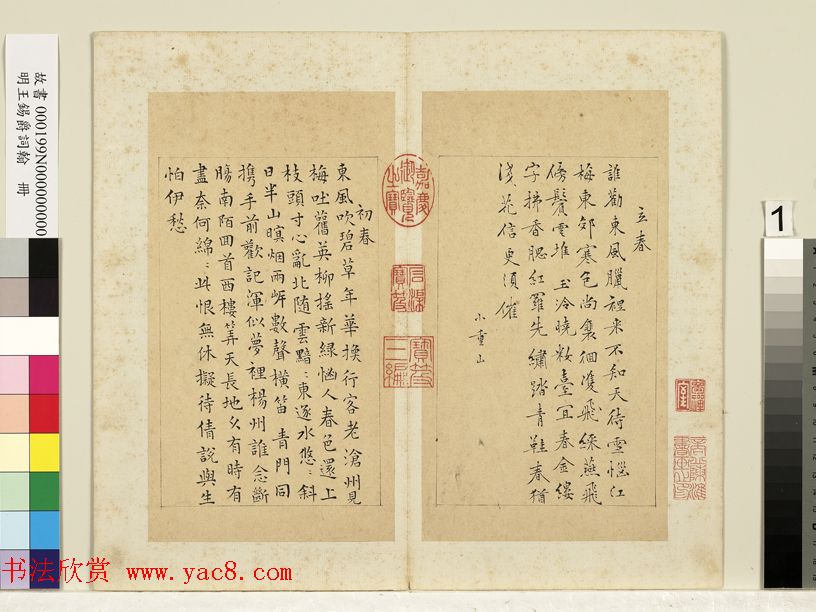 立春
誰勸東風臘裡来不知天待雪惱江
梅東郊寒色尚裵徊雙飛綵燕飛
傍鬢雲堆 玉冷曉粧臺宜春金縷
字拂香腮紅羅先繡踏青鞋春猶
淺花信更須催
小重山
初春
東風吹碧草年華換行客老滄州見
梅吐舊英柳搖新緑惱人春色還上
枝頭寸心亂北随雲黯〻東逐水悠〻斜
日半山暝烟兩岸數聲橫笛 青門同
携手前歡記渾似夢裡楊州誰念斷
腸南陌回首西樓筭天長地久有時有
盡奈何綿〻此恨無休擬待倩說與生
怕伊愁
嘉慶御覽之寶
石渠寶笈
寶笈三編
故書 000199N000000000
明王錫爵詞翰 冊
1
书法欣赏 www.yac8.com